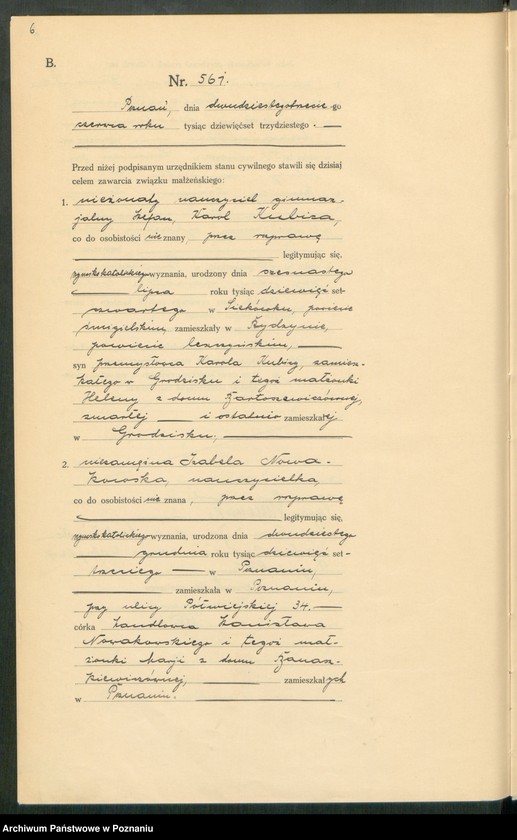 6
B.
Nr. 561.
Poznań, dnia dwudziestego -go
czerwca roku tysiąc dziewięćset trzydziestego
Przed niżej podpisanym urzędnikiem stanu cywilnego stawili się dzisiaj
celem zawarcia związku małżeńskiego:
1. nieżonaty nauczyciel gimnaz-
jalny Stefan, Karol Kubica,
co do osobistości nie znany, przez rozprawę
legitymując się,
rzymskokatolickiego wyznania, urodzony dnia szesnastego
lipca roku tysiąc dziewięć set-
czwartego w powiecie
śmigielskim, zamieszkały w Rydzynie,
powiecie leszczyńskim,
syn przemysłowca Karola Kubicy, zamiesz-
kałego w Grodzisku i tegoż małżonki
Heleny z domu
zmarłej i ostatnio zamieszkałej
w Grodzisku,
2. niezamężna Izabela Nowa-
kowska, nauczycielka,
co do osobistości nie znana, przez rozprawę
legitymując się,
rzymskokatolickiego wyznania, urodzona dnia dwudziestego
grudnia roku tysiąc dziewięć set-
trzeciego w Poznaniu,
zamieszkała w Poznaniu,
przy ulicy Półwiejskiej 34.
córka handlowca Stanisława
Nowakowskiego i tegoż mał-
żonki Marji z domu
zamieszkałych
w Poznaniu.
Archiwum Państwowe w Poznaniu